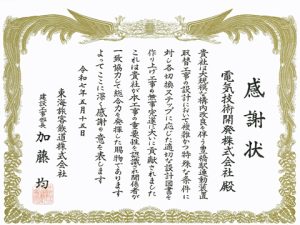 感謝状
電気技術開発株式会社 殿
貴社は大規模な構内改良を伴う豊橋駅連動装置
取替工事の設計において複雑かつ特殊な条件に
対し各切換ステップに応じた適切な設計図書を
作り上げ工事の無事完遂に大いに貢献されました
これは貴社が本工事の重要性を認識され関係者が
一致協力して総合力を発揮した賜物であります
よってここに深く感謝の意を表します
令和七年五月十五日
東海旅客鉄道株式会社
建設工事部長 加藤 均